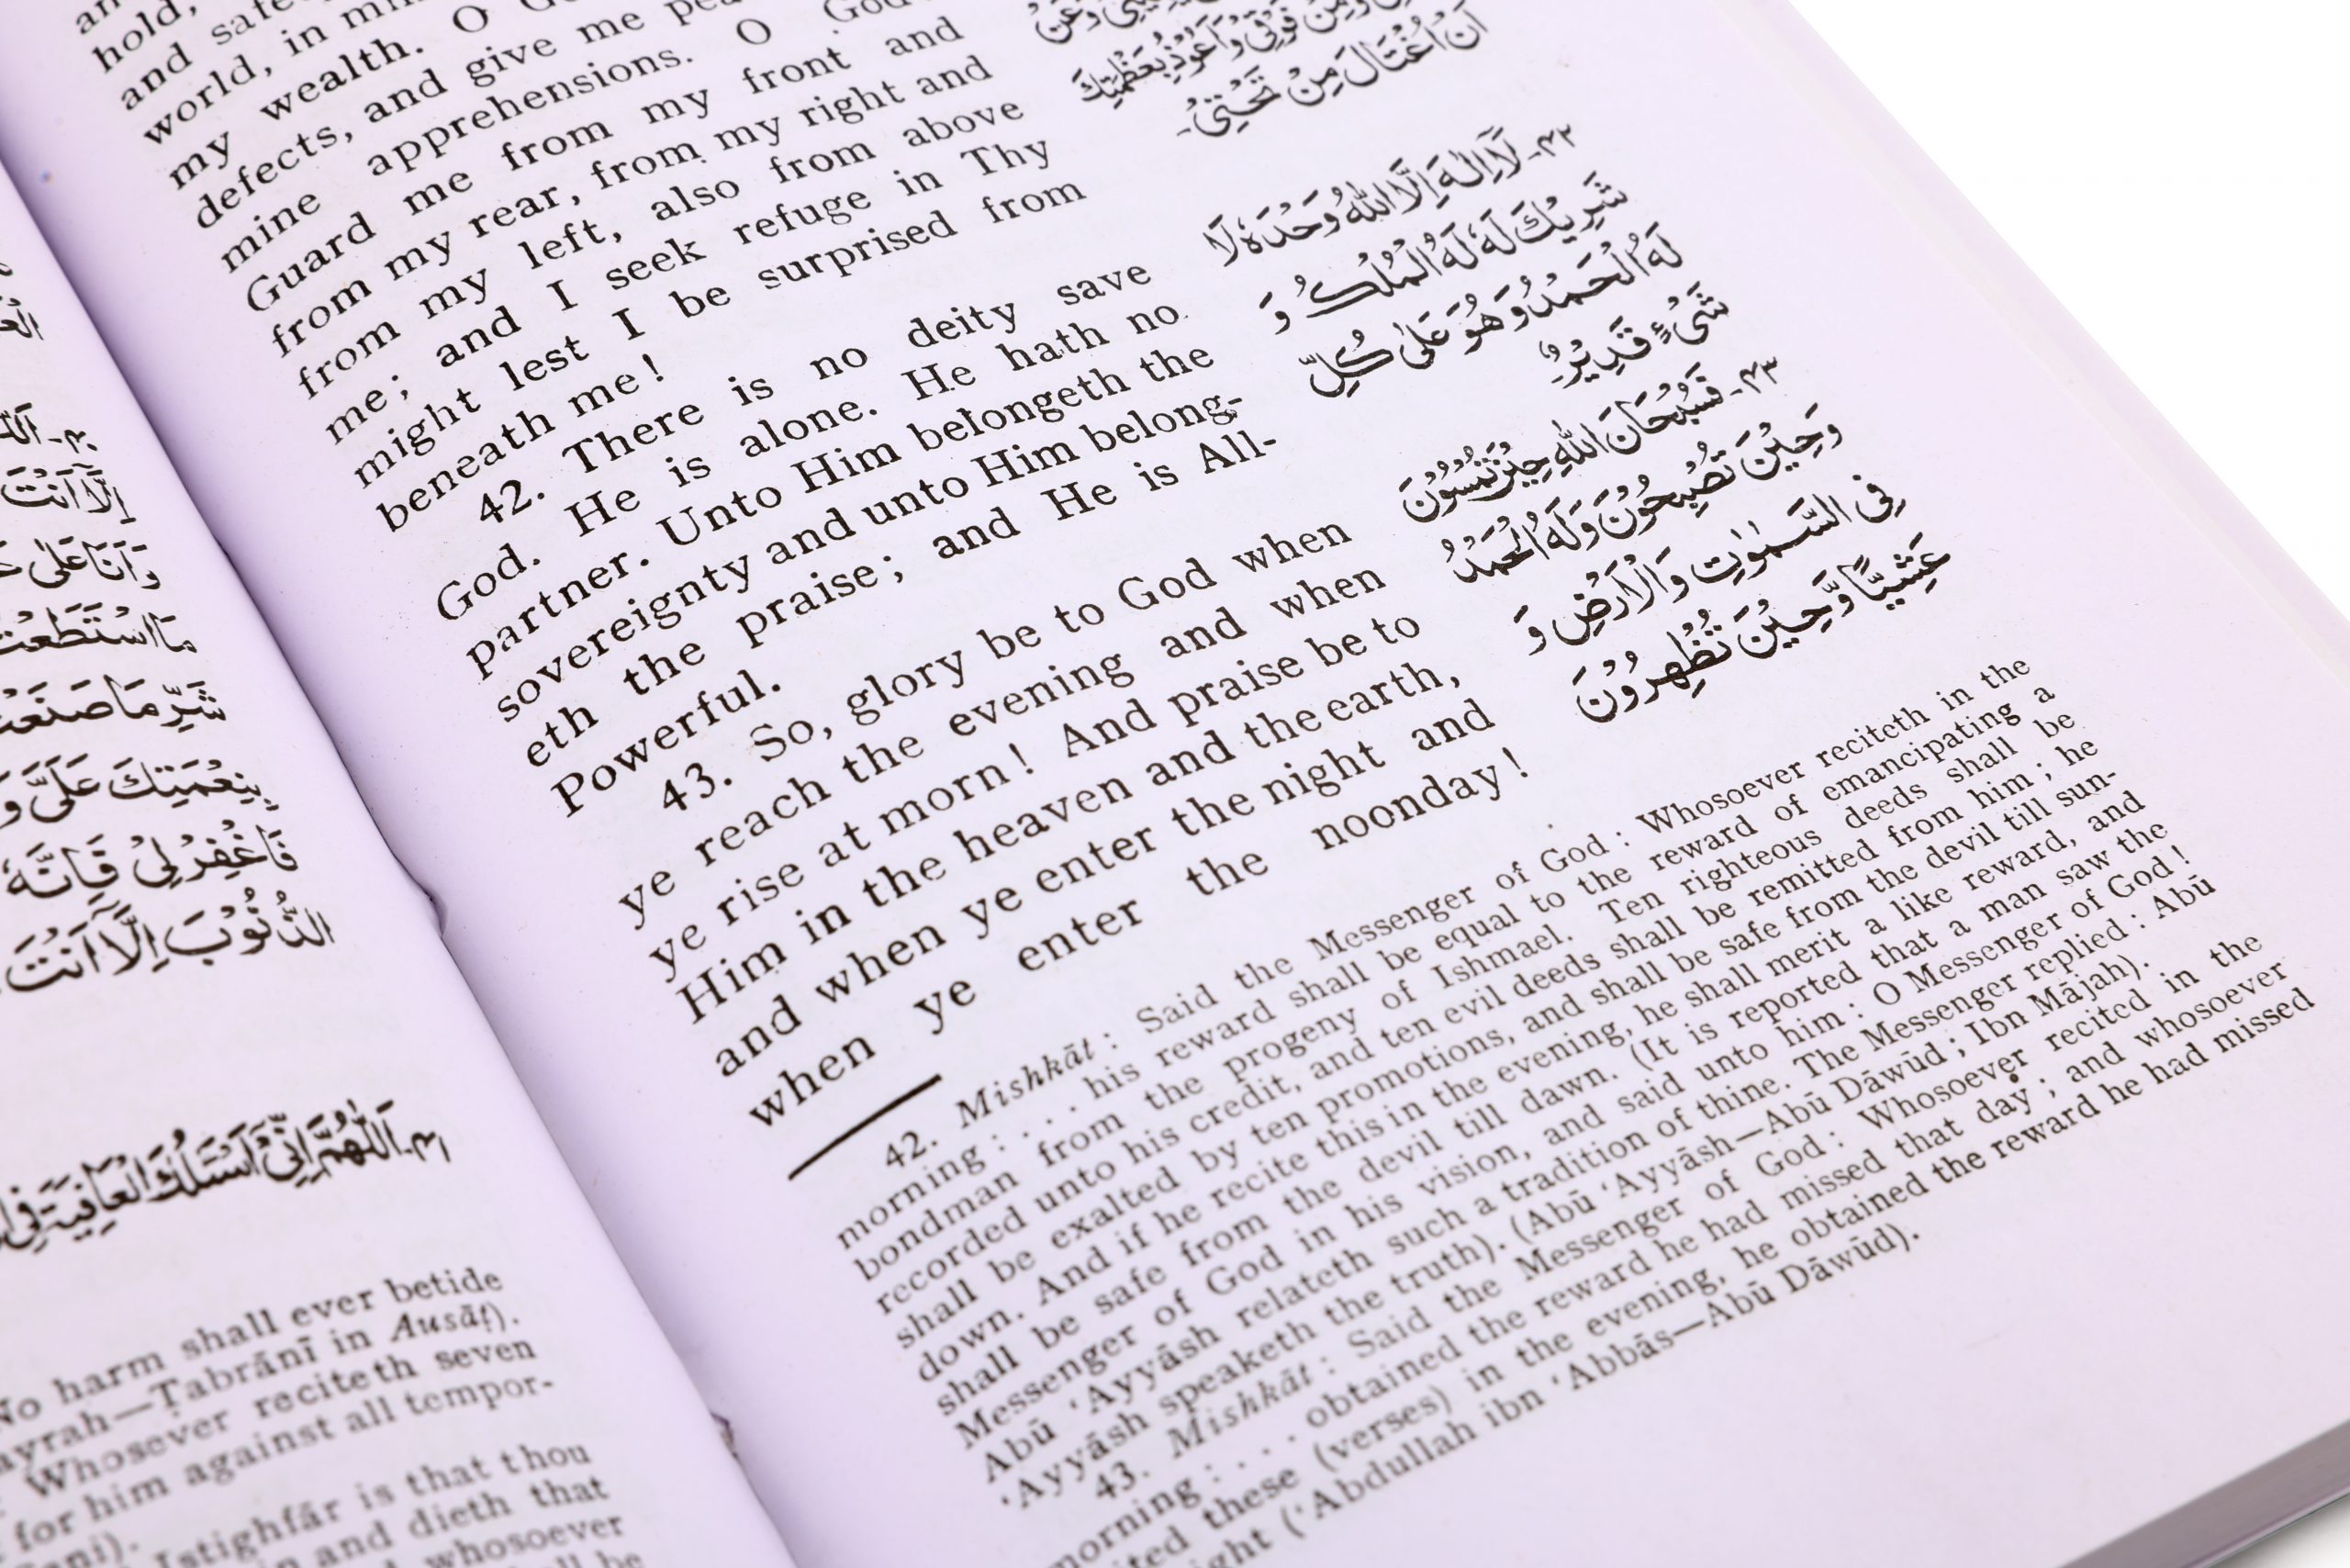 العـ
اَللّٰـ -۴۰
اِلَّآ اَنْتَ
وَاَنَا عَلٰى
مَا اسْتَطَعْتُ
شَرِّ مَا صَنَعْتُ
بِنِعْمَتِكَ عَلَىَّ وَ
فَاغْفِرْلِىْ فَاِنَّهٗ
الذُّنُوْبَ اِلَّآ اَنْتَ
۴۱- اَللّٰهُمَّ اِنِّىْٓ اَسْئَلُكَ الْعَافِيَةَ فِى
No harm shall ever betide
ayrah—Ṭabrānī in Ausāṭ).
Whosoever reciteth seven
for him against all tempor-
Istighfār is that thou
and dieth that
whosoever
hold,
and safe
world, in
my wealth. O
defects, and give me
mine apprehensions. O God
Guard me from my front and
from my rear, from my right and
from my left, also from above
me; and I seek refuge in Thy
might lest I be surprised from
beneath me!
42. There is no deity save
God. He is alone. He hath no
partner. Unto Him belongeth the
sovereignty and unto Him belong-
eth the praise; and He is All-
Powerful.
43. So, glory be to God when
ye reach the evening and when
ye rise at morn! And praise be to
Him in the heaven and the earth,
and when ye enter the night and
when ye enter the noonday!
وَعَنْ
وَمِنْ فَوْقِىْ وَاَعُوْذُ بِعَظْمَتِكَ
اَنْ اُغْتَالَ مِنْ تَحْتِىْ-
۴۲- لَآ اِلٰهَ اِلَّا اللهُ وَحْدَهٗ لَا
شَرِيْكَ لَهٗ لَهُ الْمُلْكُ وَ
لَهُ الْحَمْدُ وَهُوَ عَلٰى كُلِّ
شَىْءٍ قَدِيْرٌ
۴۳- فَسُبْحَانَ اللهِ حِيْنَ تُمْسُوْنَ
وَحِيْنَ تُصْبِحُوْنَ وَلَهُ الْحَمْدُ
فِى السَّمٰوٰتِ وَالْاَرْضِ وَ
عَشِيًّا وَّحِيْنَ تُظْهِرُوْنَ
42. Mishkāt: Said the Messenger of God: Whosoever reciteth in the
morning: . . . his reward shall be equal to the reward of emancipating a
bondman from the progeny of Ishmael. Ten righteous deeds shall be
recorded unto his credit, and ten evil deeds shall be remitted from him; he
shall be exalted by ten promotions, and shall be safe from the devil till sun-
down. And if he recite this in the evening, he shall merit a like reward, and
shall be safe from the devil till dawn. (It is reported that a man saw the
Messenger of God in his vision, and said unto him: O Messenger of God!
Abū ‘Ayyāsh relateth such a tradition of thine. The Messenger replied: Abū
‘Ayyāsh speaketh the truth). (Abū ‘Ayyāsh—Abū Dāwūd; Ibn Mājah).
43. Mishkāt: Said the Messenger of God: Whosoever recited in the
morning: . . . obtained the reward he had missed that day; and whosoever
ited these (verses) in the evening, he obtained the reward he had missed
ight (‘Abdullah ibn ‘Abbās—Abū Dāwūd).